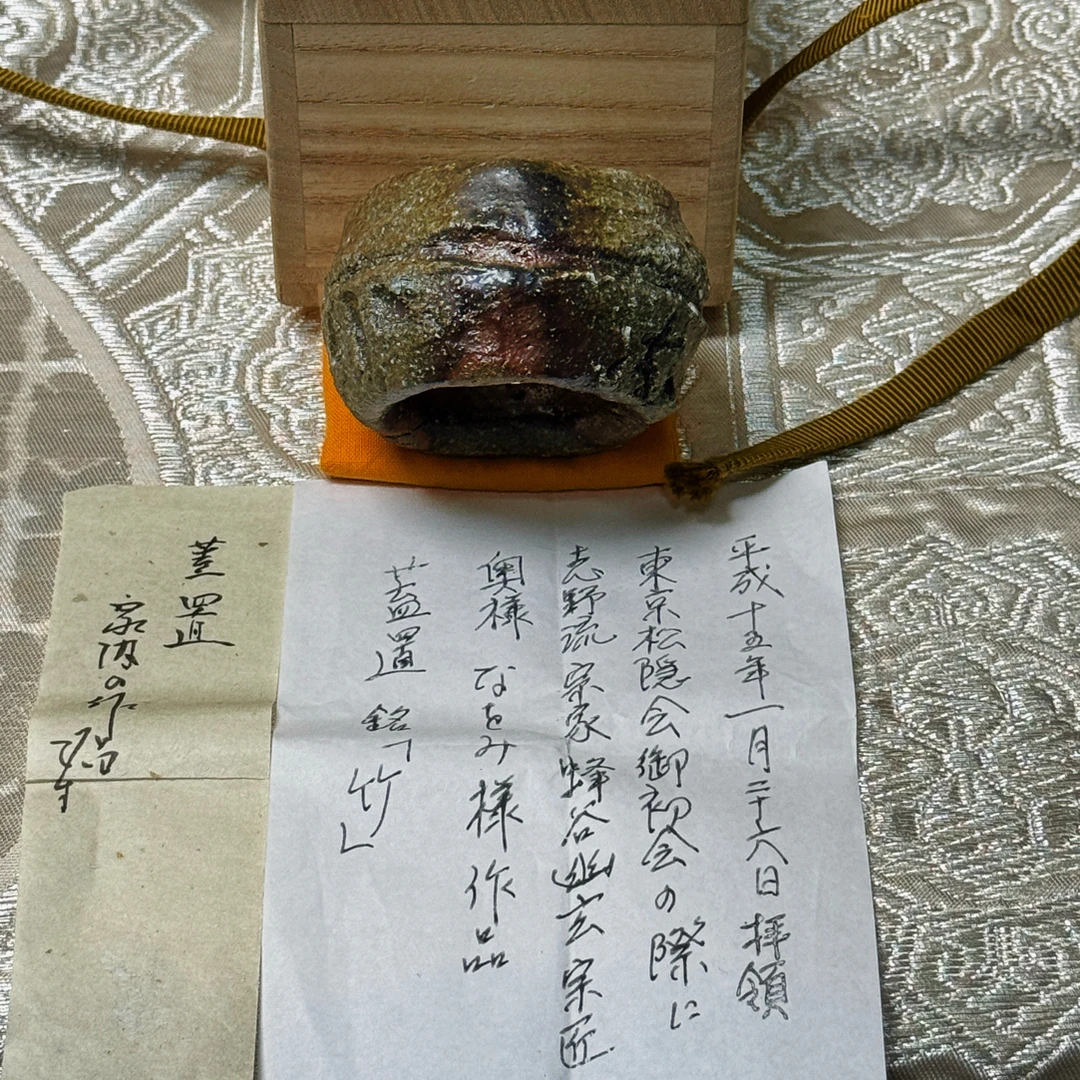 平成十五年一月二十六日 拝領
東京松隠会御初会の際に
志野流 宗家 蜂谷幽玄 宗匠
奥様 なをみ様 作品
蓋置 銘「竹」
蓋置
家内の作品
です